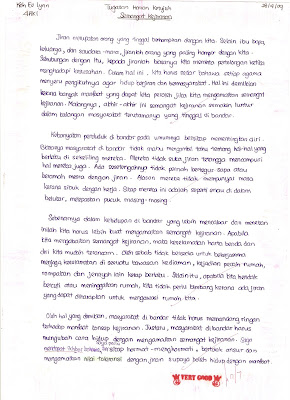 Koh Ee Lyan
4 HK1
Tugasan Harian Majalah
Semangat Kejiranan
Jiran merupakan orang yang tinggal bersempadan dengan kita. Selain ibu bapa,
keluarga, dan saudara-mara, jiranlah orang yang paling hampir dengan kita.
Sehubungan dengan itu, kepada jiranlah biasanya kita meminta pertolongan ketika
menghadapi kesusahan. Dalam hal ini, kita harus sedar bahawa setiap agama
menyeru pengikutnya agar hidup berjiran dan bermasyarakat. Hal ini demikian
kerana banyak manfaat yang dapat kita peroleh jika kita mengamalkan semangat
kejiranan. Malangnya, akhir-akhir ini semangat kejiranan semakin luntur
dalam kalangan masyarakat terutamanya yang tinggal di bandar.
Kebanyakan penduduk di bandar pada umumnya bersikap mementingkan diri.
Seorang masyarakat di bandar tidak mahu mengambil tahu tentang hal-hal yang
berlaku di sekeliling mereka. Mereka tidak suka jiran tetangga mencampuri
hal mereka juga. Ada sesetengahnya tidak pernah bertegur sapa atau
beramah mesra dengan jiran. Alasan mereka tidak mempunyai masa
kerana sibuk dengan kerja. Sikap mereka ini adalah seperti enau di dalam
belukar, melepaskan pucuk masing-masing.
Sebenarnya dalam kehidupan di bandar yang lebih mencabar dan moden
inilah kita harus lebih kuat mengamalkan semangat kejiranan. Apabila
kita mengabaikan semangat kejiranan, maka keselamatan harta benda dan
diri kita mudah terancam. Oleh sebab tidak bersedia untuk bekerjasama
menjaga keselamatan di sesuatu kawasan kediaman, kejadian pecah rumah,
rompakan dan jenayah lain kerap berlaku. Selain itu, apabila kita hendak
bercuti atau meninggalkan rumah, kita tidak perlu bimbang kerana ada jiran
yang dapat diharapkan untuk mengawasi rumah kita.
Oleh hal yang demikian, masyarakat di bandar tidak harus memandang ringan
terhadap manfaat konsep kejiranan. Justeru, masyarakat di bandar harus
mengubah cara hidup dengan mengamalkan semangat kejiranan.
bersikap hormat-menghormati, bertolak ansur dan
mengamalkan nilai toleransi dengan jiran supaya boleh hidup dengan muafakat.
VERY GOOD